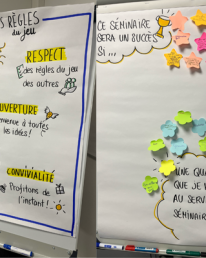 ES RÈGLES
du jeu
RESPECT
des règles du jeu
des autres
OUVERTURE
bienvenue à toutes
les idées!
CONVIVIALITÉ
Profitons de
l'instant!
CE SÉMINAIRE
SERA UN SUCCÈS
SI...
UNE QUA
QUE JE M
AU SERV
SÉMINAIR